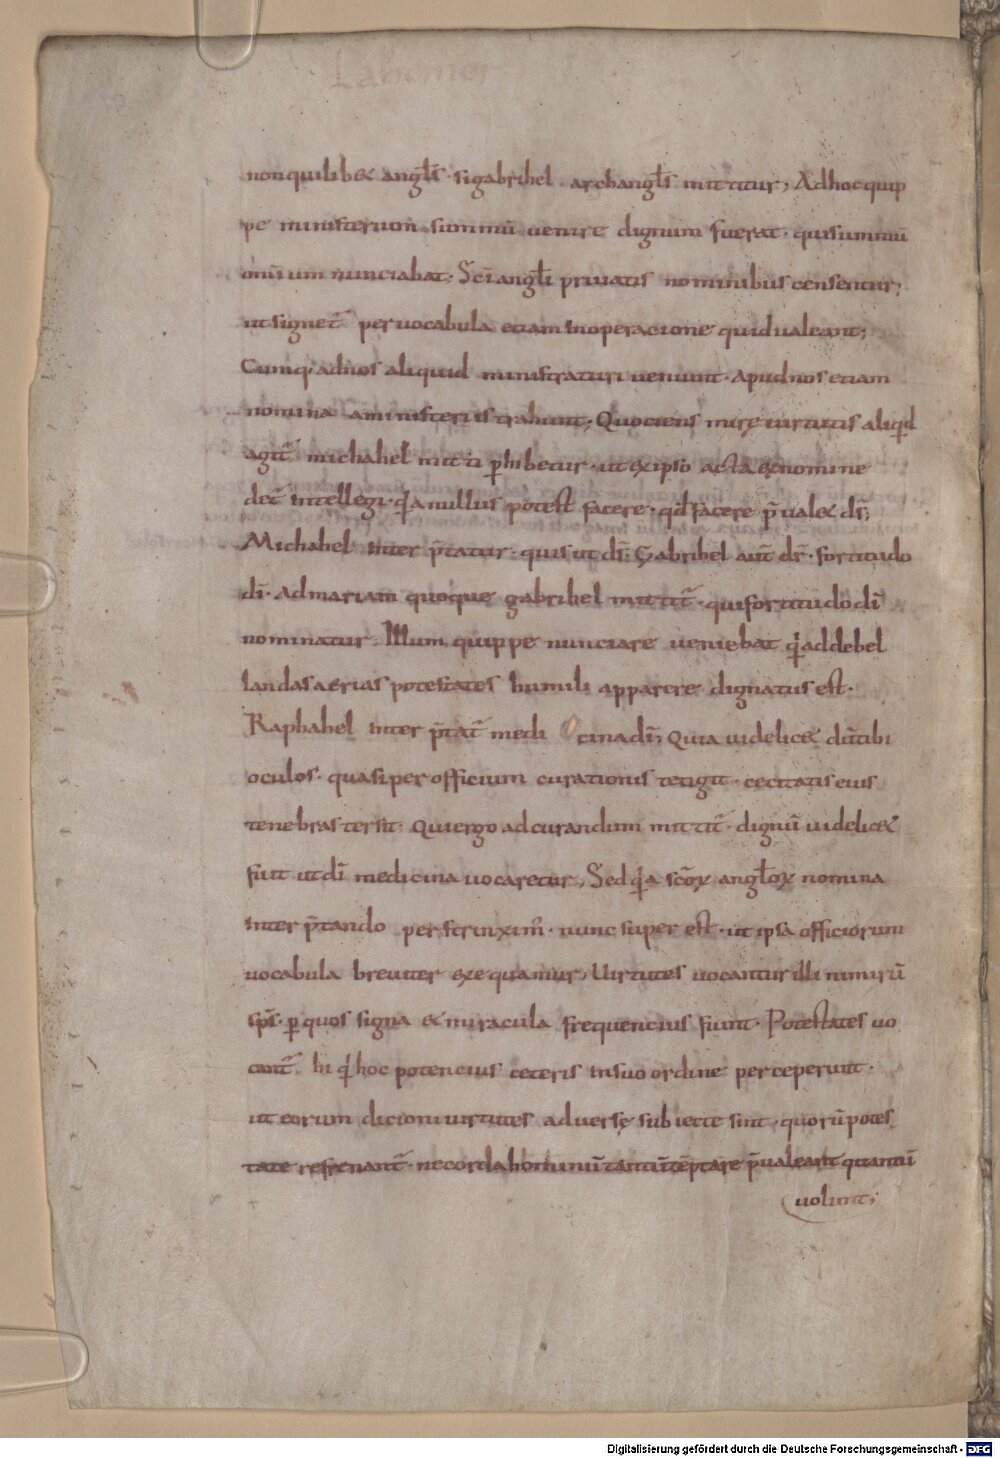 non quilibet angľs · si gabrihel · archangľs mittitur; Ad hoc quip
pe ministerium summū uenire dignum fuerat · qui summū
omnium nunciabat · Sc̄i angľi priuatis nominibus censentur;
ut signet̄ per uocabula etiam in operacione quid ualeant;
Cumq; ad nos aliquid ministraturi ueniunt · Apud nos etiam
nomina a ministeriis trahunt; Quociens mirę uirtutis aliqd
agit̄ michahel mitti p̄hibetur · ut ex ipso acta & nomine
det̄ intellegi · qa nullus potest facere · qđ facere p̄ualet dš;
Michahel inter p̄tatur · quis ut dš; Gabrihel aut̄ dr̄ · fortitudo
dī · Ad mariam quoque gabrihel mittit̄ · qui fortitudo dī
nominatur · Illum quippe nunciare ueniebat qi ad debel
landas aerias potestates humilis apparere dignatus est ·
Raphahel inter p̄tat̄ medi cina dī; Quia uidelicet dū tibi
oculos · quasi per officium curationis tetigit · cecitatis eius
tenebras tersit; Qui ergo ad curandum mittit̄ · dignū uidelicet
fuit ut dī medicina uocaretur; Sed qa sc̄oꝝ angľoꝝ nomina
inter p̄tando perstrinxim̄ · nunc super est · ut ipsa officiorum
uocabula breuiter exequamur; Uirtutes uocantur illi nimirū
sp̄s · ꝑ quos signa & miracula frequencius fiunt · Potestates uo
cant̄ hi qi hoc potencius ceteris in suo ordine perceperunt ·
ut eorum dicioni uirtutes aduersę subiecte sint · quorū potes
tate refrenant̄ · ne corda hominū tantū tēptare p̄ualeant quantū
uolunt;
Digitalisierung gefördert durch die Deutsche Forschungsgemeinschaft - DFG